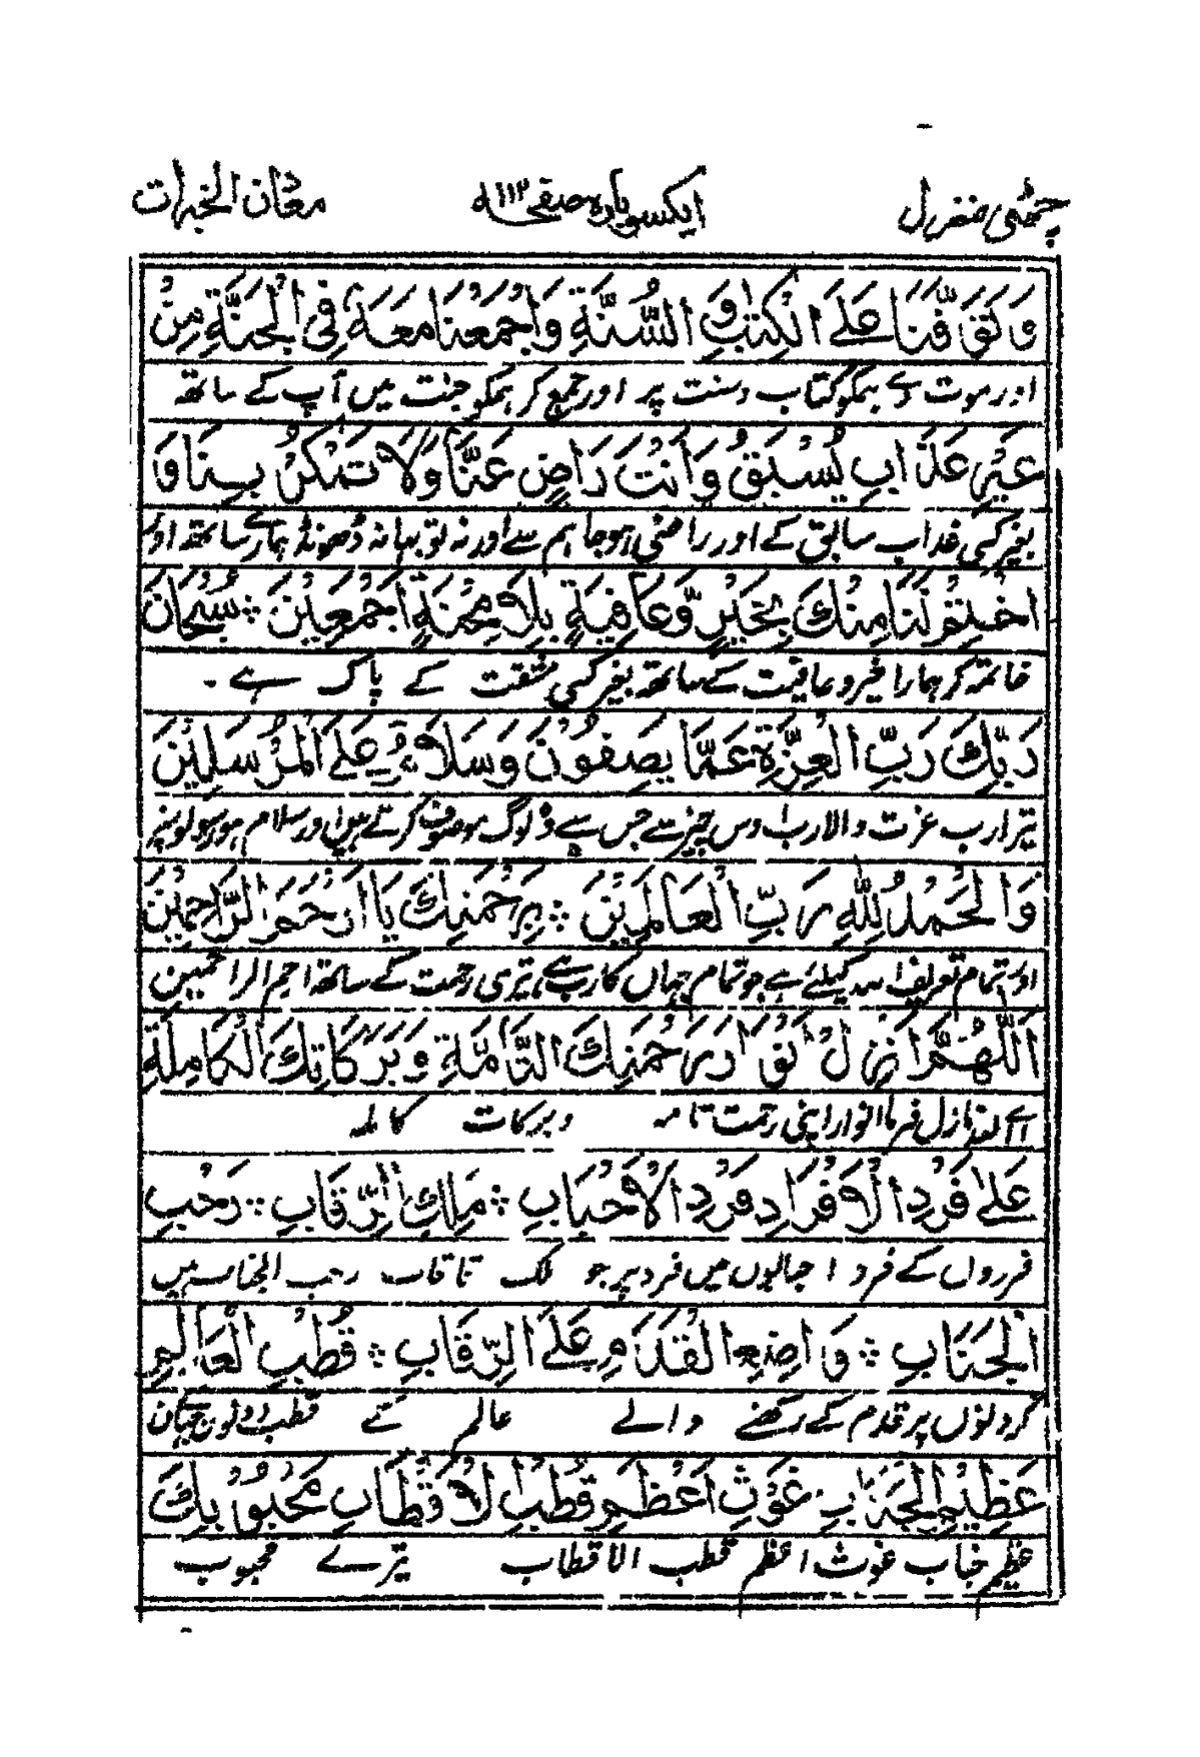 چھٹی منزل ایکسو بارہ صفحہ ۱۱۲ معدن الخیرات
وَتَوَفَّنَا عَلَى الْكِتٰبِ وَالسُّنَّةِ وَاجْمَعْنَا مَعَهٗ فِى الْجَنَّةِ مِنْ
اور موت دے ہمکو کتاب وسنت پر اور جمع کر ہمکو جنت میں آپ کے ساتھ
غَيْرِ عَذَابٍ يُسْبَقُ وَاَنْتَ رَاضٍ عَنَّا وَلَا تَمْكُرْ بِنَا وَ
بغیر کسی عذاب سابق کے اور راضی ہوجا ہم سے اور نہ تو بہانہ ڈھونڈ ہمارے ساتھ اور
اخْتِمْ لَنَا مِنْكَ بِخَيْرٍ وَّعَافِيَةٍ بِلَا مِحْنَةٍ اَجْمَعِيْنَ ؞ سُبْحَانَ
خاتمہ کر ہمارا خیر و عافیت کے ساتھ بغیر کسی مشقت کے پاک ہے ۔
رَبِّكَ رَبِّ الْعِزَّةِ عَمَّا يَصِفُوْنَ وَسَلَامٌ عَلَى الْمُرْسَلِيْنَ
تیرا رب عزت والا رب اوس چیز سے جس سے وہ لوگ موصوف کرتے ہیں اور سلام ہو رسولونپر
وَالْحَمْدُ لِلّٰهِ رَبِّ الْعَالَمِيْنَ ؞ بِرَحْمَتِكَ يَا اَرْحَمَ الرَّاحِمِيْنَ
اور تمام تعریف اللہ کیلئے ہے جو تمام جہاں کا رب ہے، تیری رحمت کے ساتھ ارحم الراحمین
اَللّٰهُمَّ اَنْزِلْ اَنْوَارَ رَحْمَتِكَ التَّامَّةِ وَبَرَكَاتِكَ الْكَامِلَةِ
اے اللہ نازل فرما انوار اپنی رحمت تامہ وبرکات کاملہ
عَلٰى فَرْدِ الْاَفْرَادِ فَرْدِ الْاَحْبَابِ ؞ مَلِكِ الرِّقَابِ ؞ رَحْبِ
فردوں کے فرد احبابوں میں فرد پر جو ملک رقاب رحب الجناب ہیں
الْجَنَابِ ؞ وَاضِعِ الْقَدَمِ عَلَى الرِّقَابِ ؞ قُطْبِ الْعَالَمِ
گردنوں پر قدم کے رکھنے والے عالم کے قطب
عَظِيْمِ الْجَنَابِ غَوْثِ اَعْظَمِ قُطْبِ الْاَقْطَابِ مَحْبُوْبِكَ
عظیم جناب غوث اعظم قطب الاقطاب تیرے محبوب